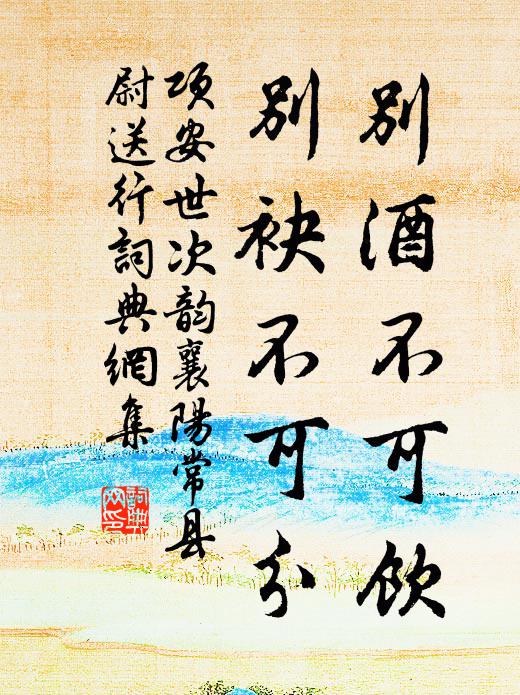 别酒不可饮
别袂不可分
项安世次韵襄陽常县
尉送行詞典網集
詞典網印